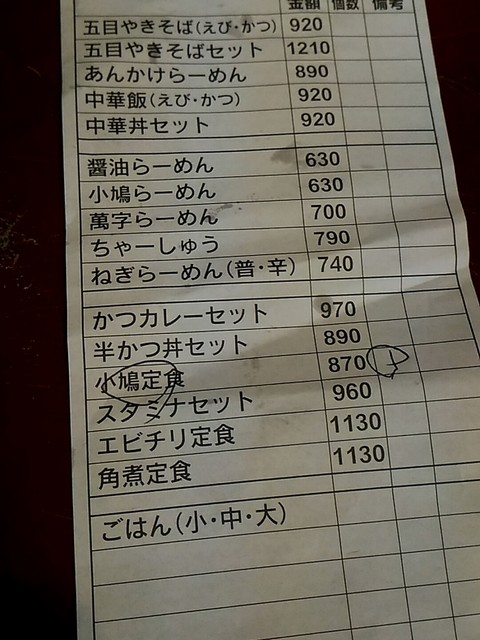 金額 個数 備考
五目やきそば(えび・かつ) 920
五目やきそばセット 1210
あんかけらーめん 890
中華飯(えび・かつ) 920
中華丼セット 920
醤油らーめん 630
小鳩らーめん 630
萬字らーめん 700
ちゃーしゅう 790
ねぎらーめん(普・辛) 740
かつカレーセット 970
半かつ丼セット 890
小鳩定食 870 1
スタミナセット 960
エビチリ定食 1130
角煮定食 1130
ごはん(小・中・大)